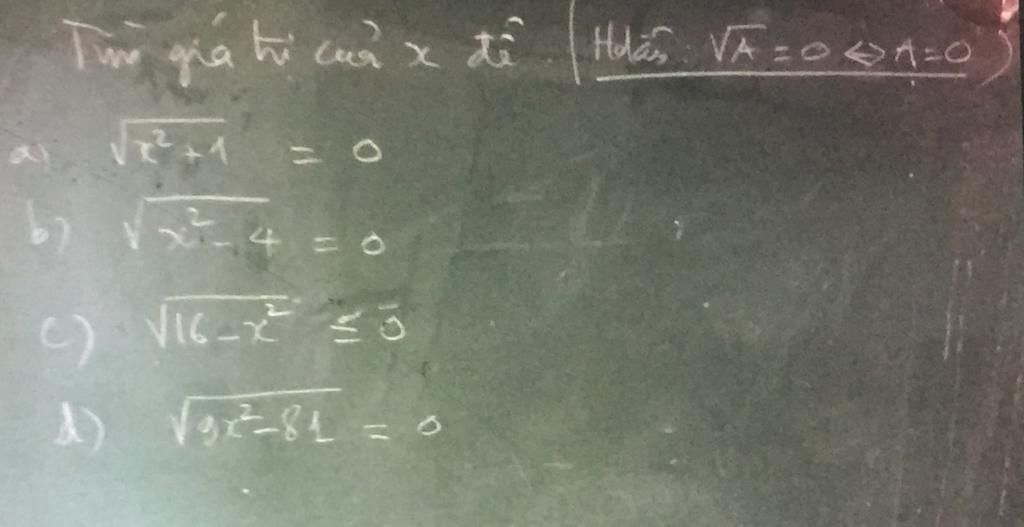 Tìm giá trị của x để. (Hdẫn: √A = 0 ⇔ A = 0)
a) √x²+1 = 0
b) √x²-4 = 0
c) √16-x² ≤ 0
d) √9x²-81 = 0